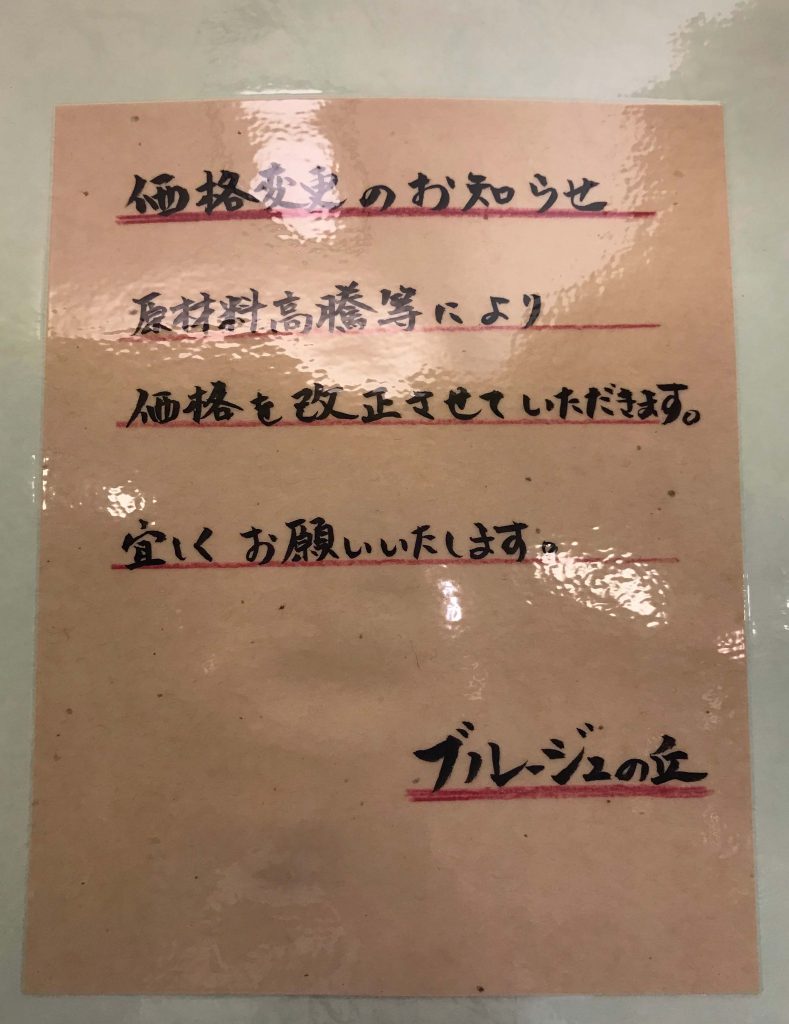 価格変更のお知らせ
原材料高騰等により
価格を改正させていただきます。
宜しくお願いいたします。
ブルージュの丘